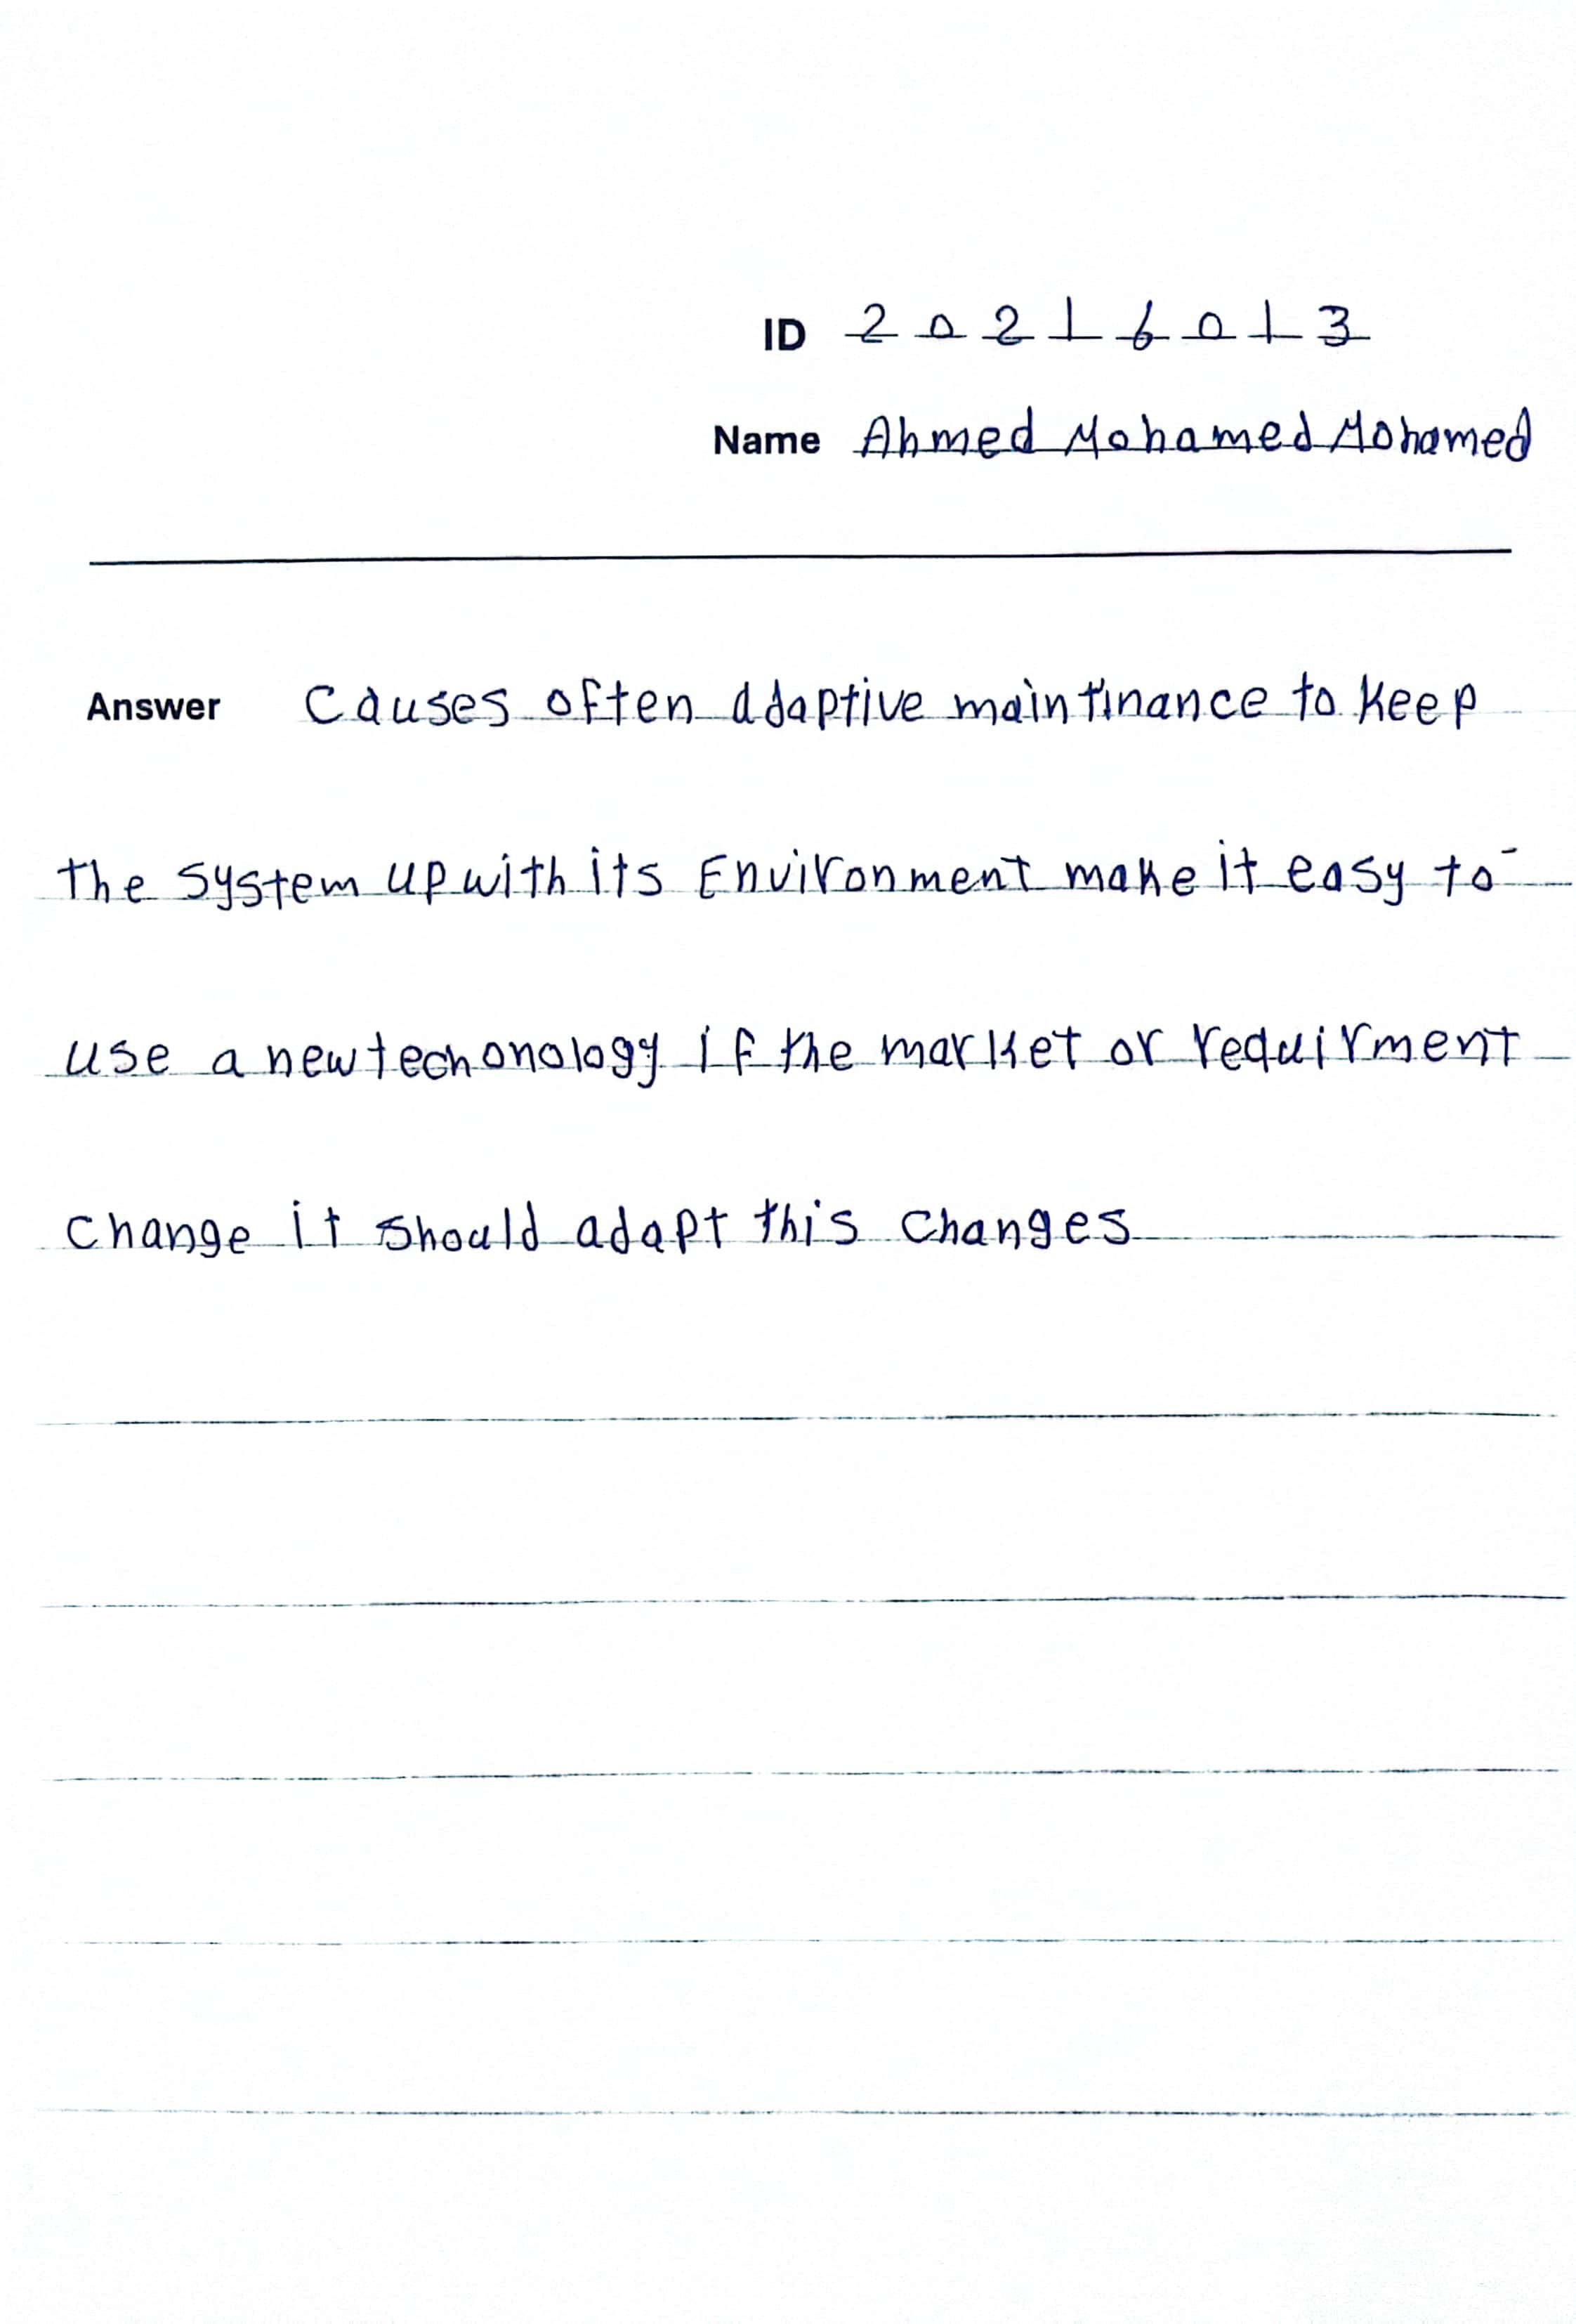 ID 20216013
Name Ahmed Mohamed Mohamed
Answer Causes often adaptive maintinance to keep
the system up with its Environment make it easy to
use a new techonology if the market or requirment
change it should adapt this changes